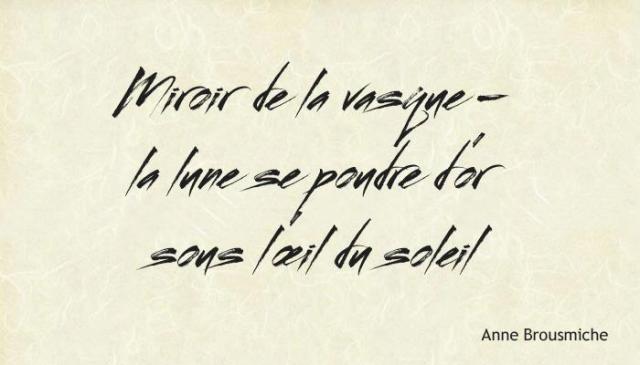 Miroir de la vasque –
la lune se poudre d'or
sous l'œil du soleil
Anne Brousmiche